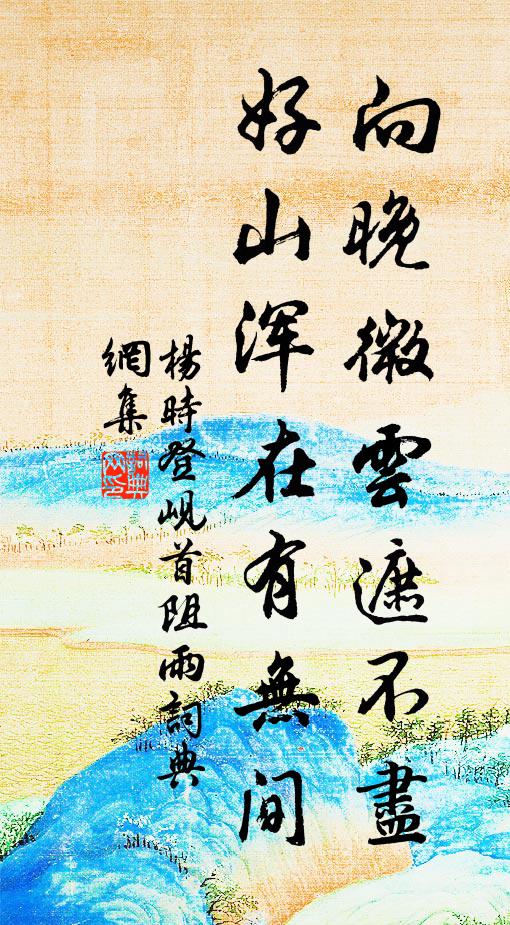 向晚微雲遮不盡
好山渾在有無間
楊時登峴首阻雨詞典
網集